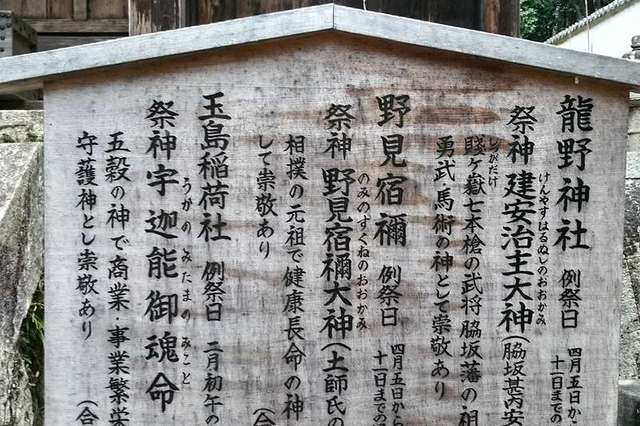 龍野神社 例祭日 四月五日から
十一日までの
祭神 建安治主大神(脇坂甚内安
けんやすはるぬしのおおかみ
賤ヶ嶽七本槍の武将脇坂藩の祖
しづがだけ
勇武・馬術の神として崇敬あり
野見宿禰 例祭日 四月五日から
十一日までの
祭神 野見宿禰大神(土師氏の
のみのすくねのおおかみ
相撲の元祖で健康長命の神
して崇敬あり
(合
玉島稲荷社 例祭日 二月初午の
祭神 宇迦能御魂命
うかのみたまのみこと
五穀の神で商業・事業繁栄
守護神とし崇敬あり
(合